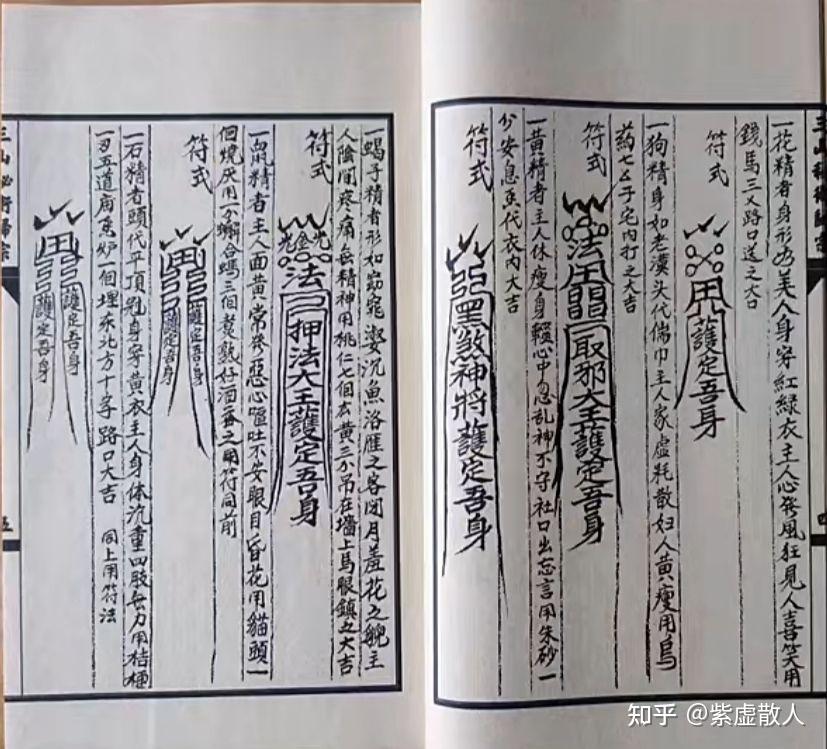 一花精者身形如美人身穿紅綠衣主人心發風狂見人喜笑用
錢馬三乂路口送之大口
符式
護定吾身
一狗精身如老漢头代偳巾主人家虛耗散妇人黄瘦用烏
药七个于宅内打之大吉
符式
法
取邪大王護定吾身
一黄精者主人休瘦身軀心中忽乱神不守社口出忘言用朱砂一
分安息香代衣内大吉
符式
黑煞神將護定吾身
四
一蝎子精者形如窈窕淑女沉魚洛雁之容闭月羞花之貌主
人陰间疼痛無精神用桃仁七個玄黄三分吊在墻上馬眼鎮之大吉
符式
光金光
法
押法大王護定吾身
一鼠精者主人面黄常發惡心嘔吐不安眼目昏花用貓頭一
個燒灰用一分蝌合螞三個煮熟好酒吞之用符同前
符式
護定吾身
護定吾身
一石精者頭代平頂冠身穿黄衣主人身体沉重四肢無力用桔梗
一刃五道廟香炉一個埋东北方十字路口大吉 同上用符法
護定吾身
護定吾身
三山秘術歸宗
五
知乎 @紫虚散人